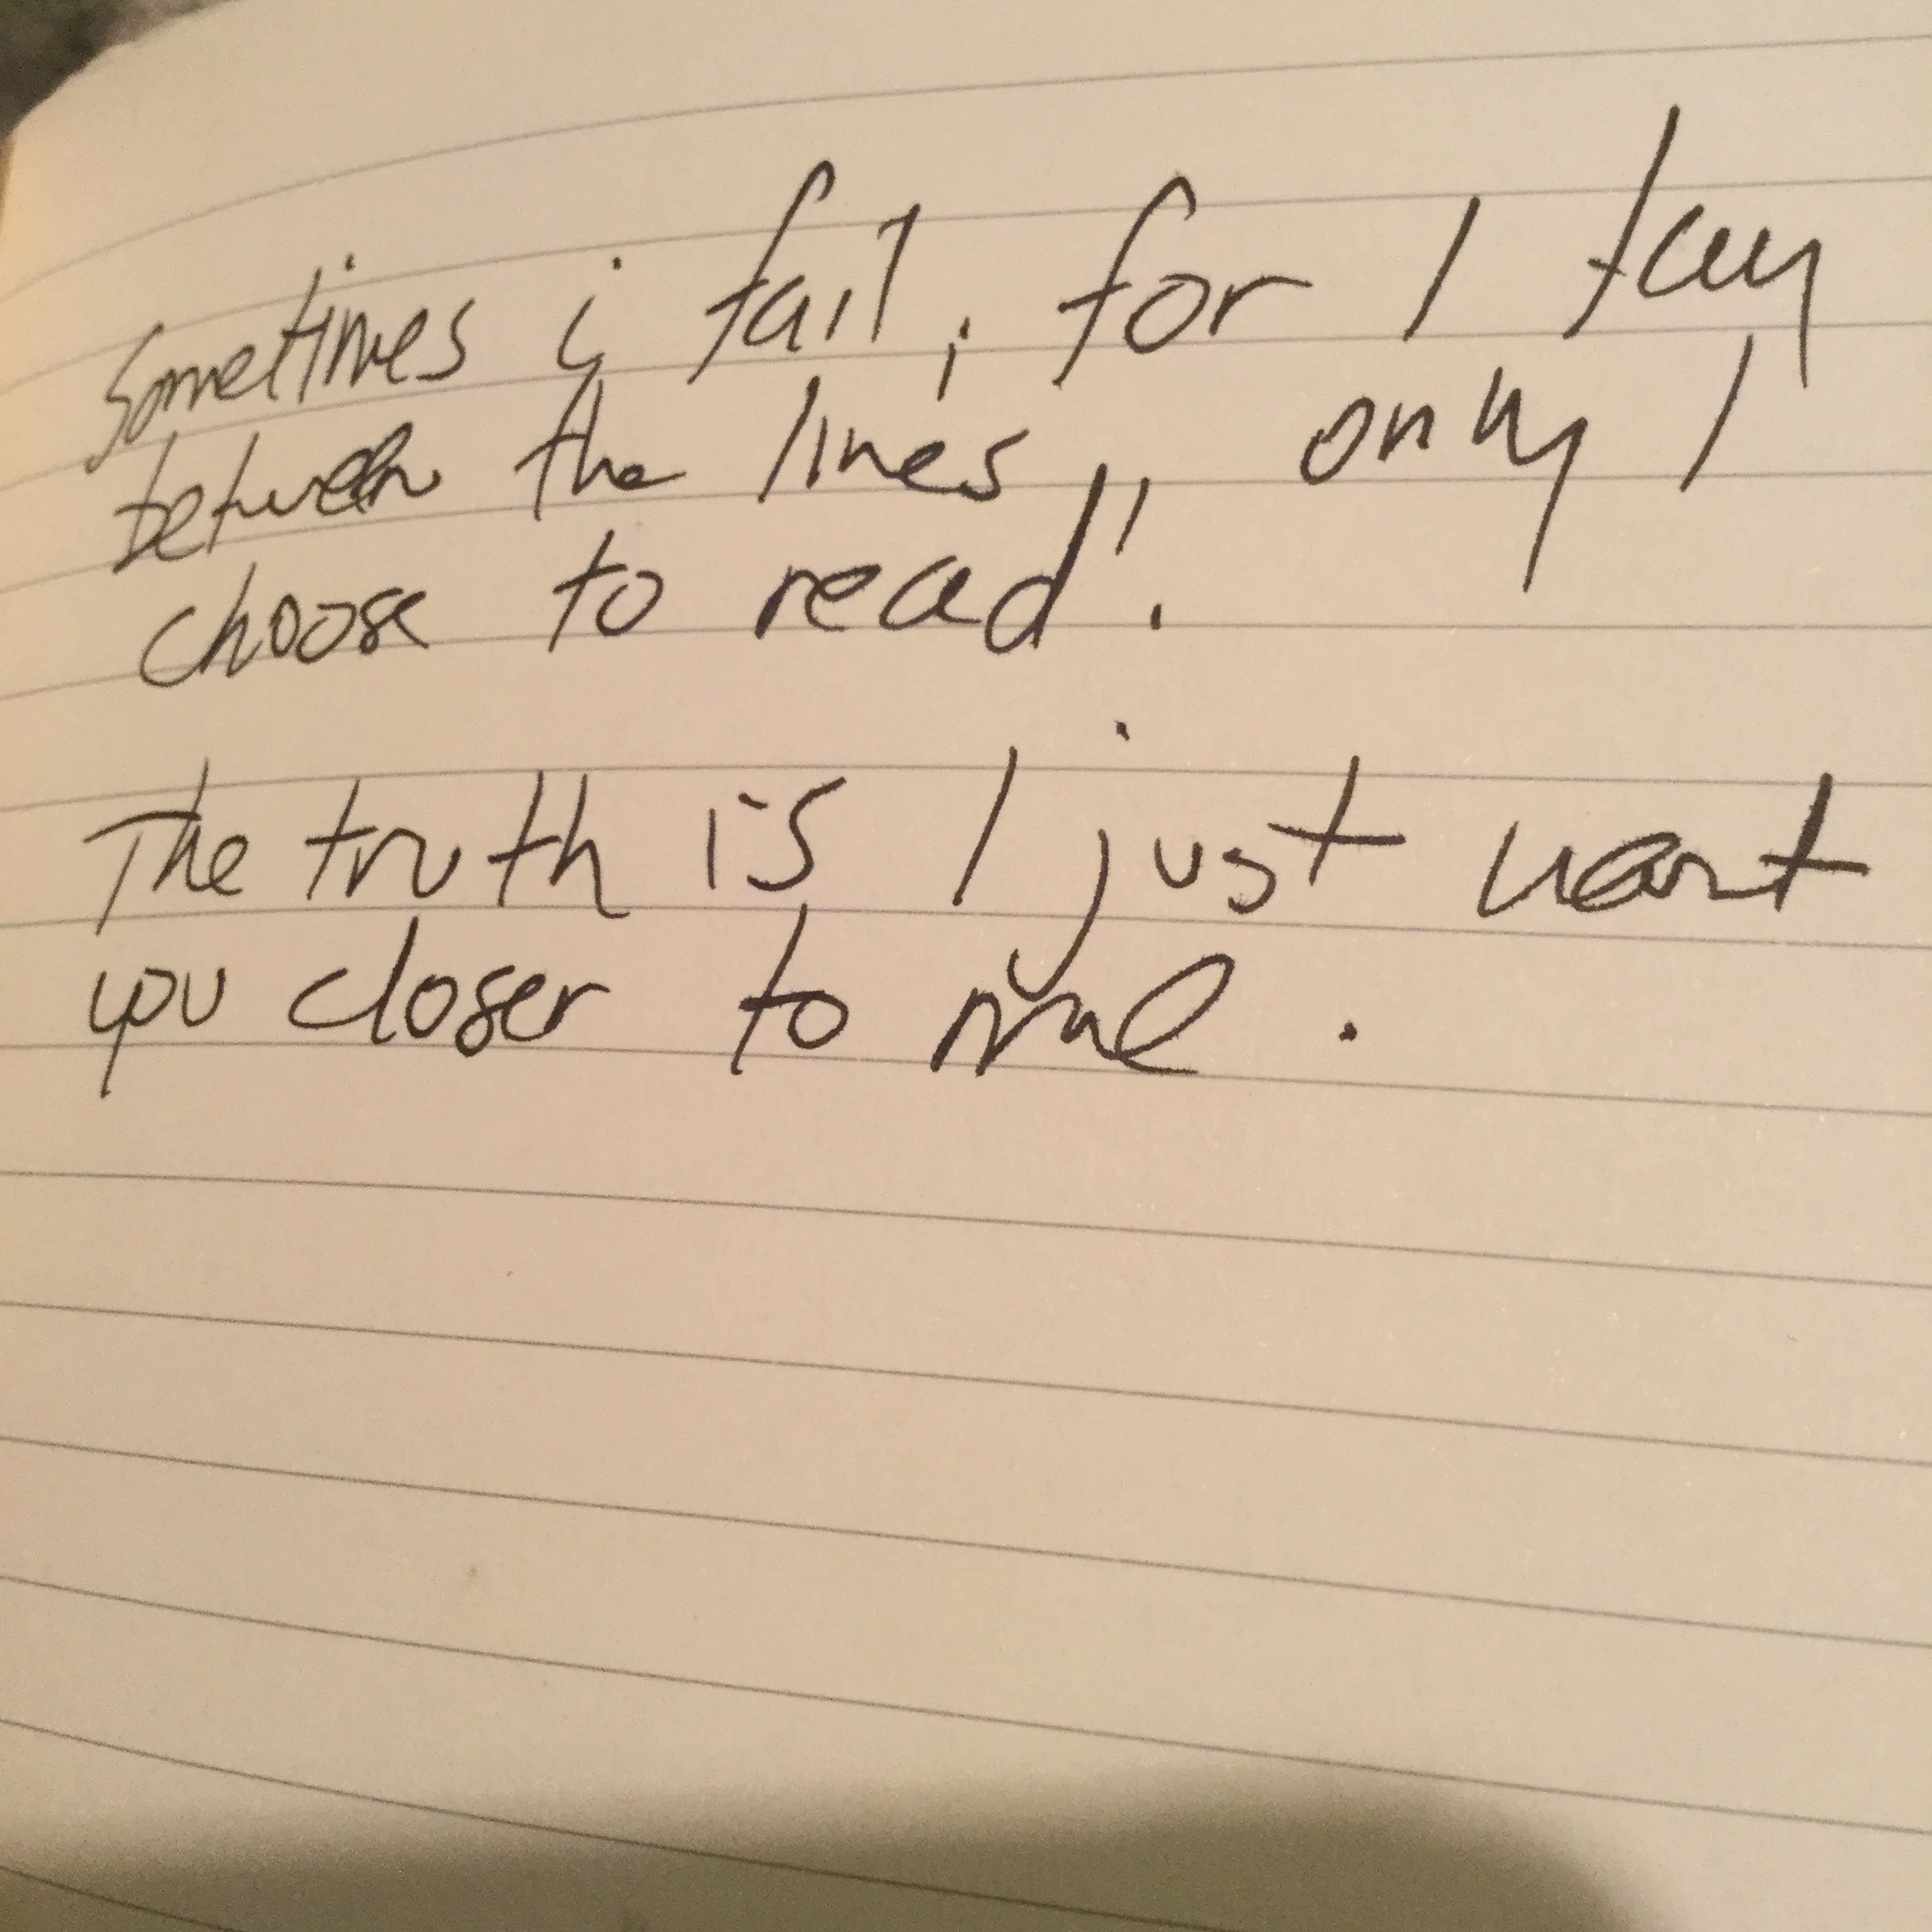 Sometimes i fail, for I
between the lines,, only I
choose to read!
The truth is I just want
you closer to me.